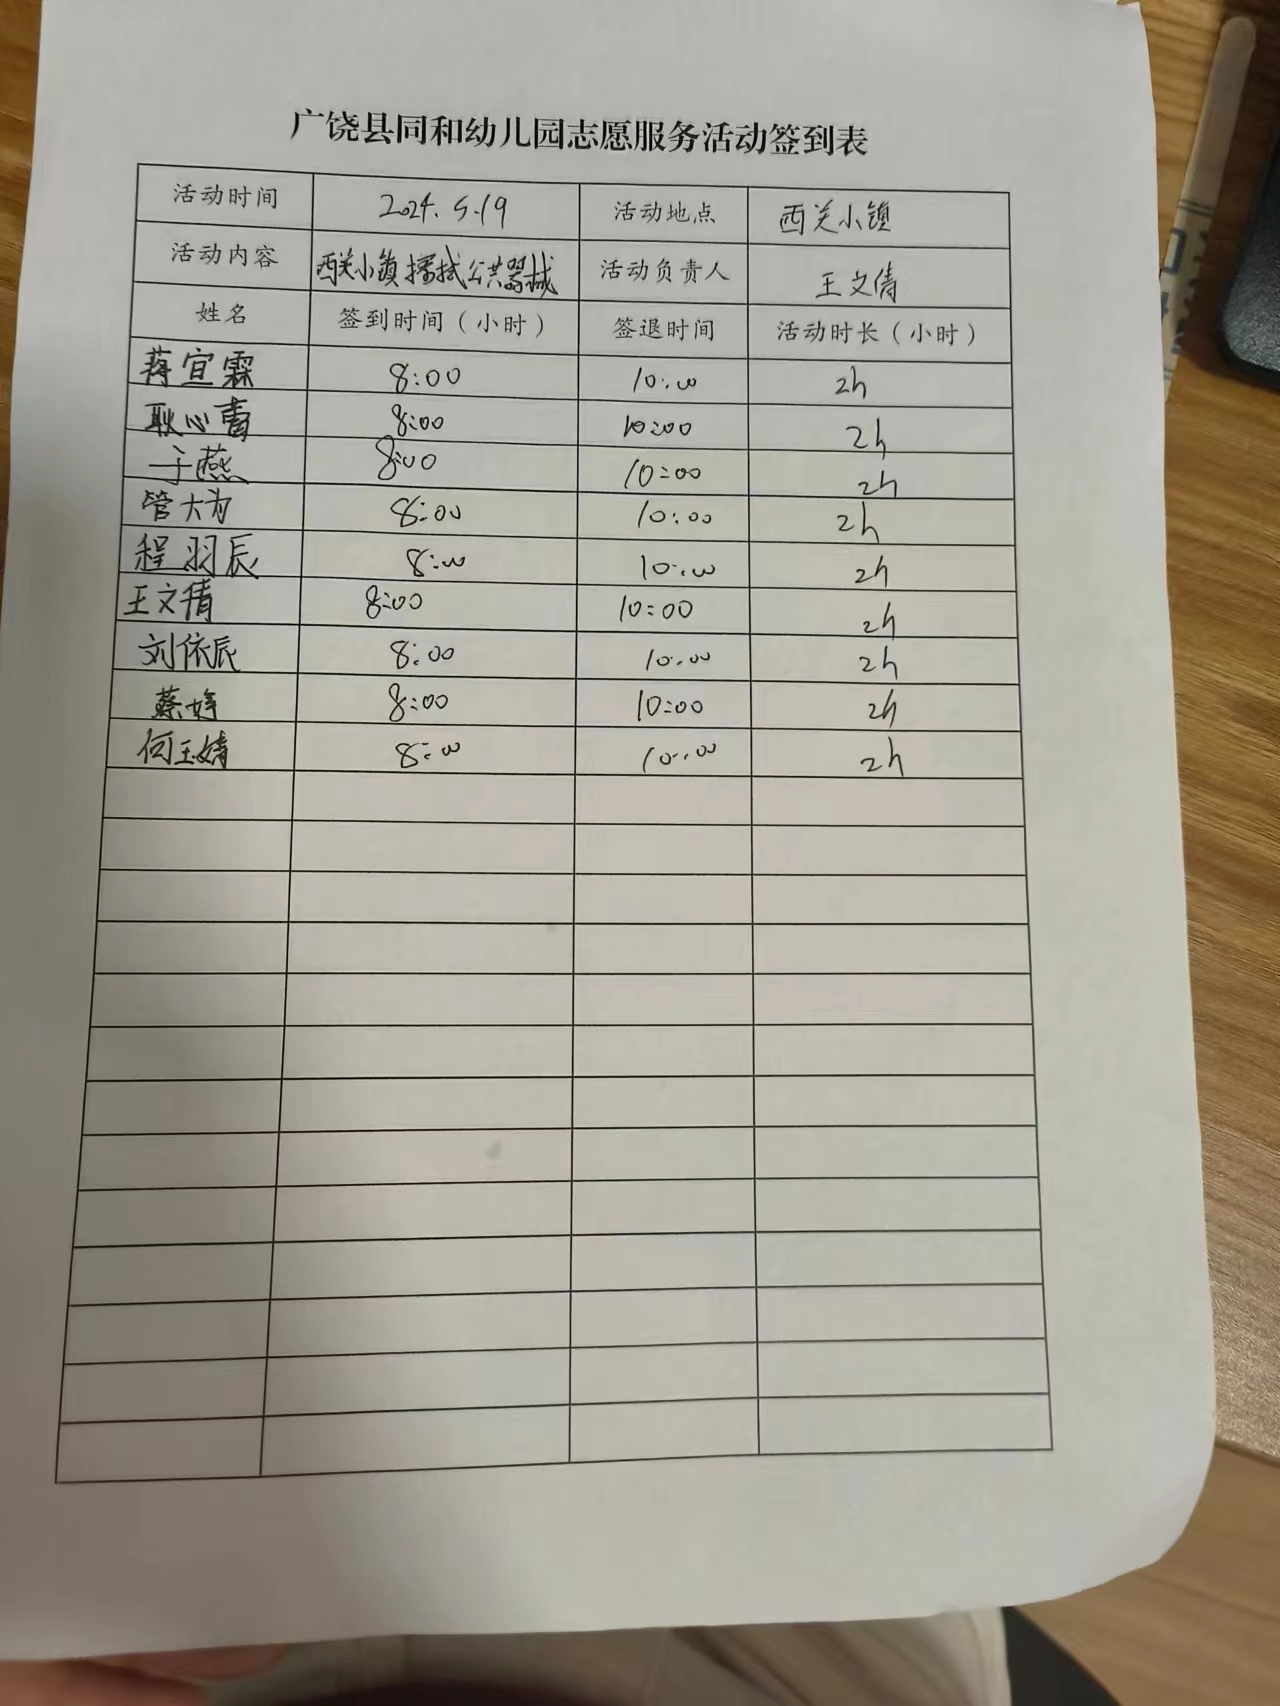 广饶县同和幼儿园志愿服务活动签到表
活动时间 2024.5.19 活动地点 西关小镇
活动内容 西关小镇擦拭公共器械 活动负责人 王文倩
姓名 签到时间（小时） 签退时间 活动时长（小时）
蒋宜霖 8:00 10:00 2h
耿心蕾 8:00 10:00 2h
于燕 8:00 10:00 2h
管大为 8:00 10:00 2h
程羽辰 8:00 10:00 2h
王文倩 8:00 10:00 2h
刘依辰 8:00 10:00 2h
蔡婷 8:00 10:00 2h
何玉婧 8:00 10:00 2h